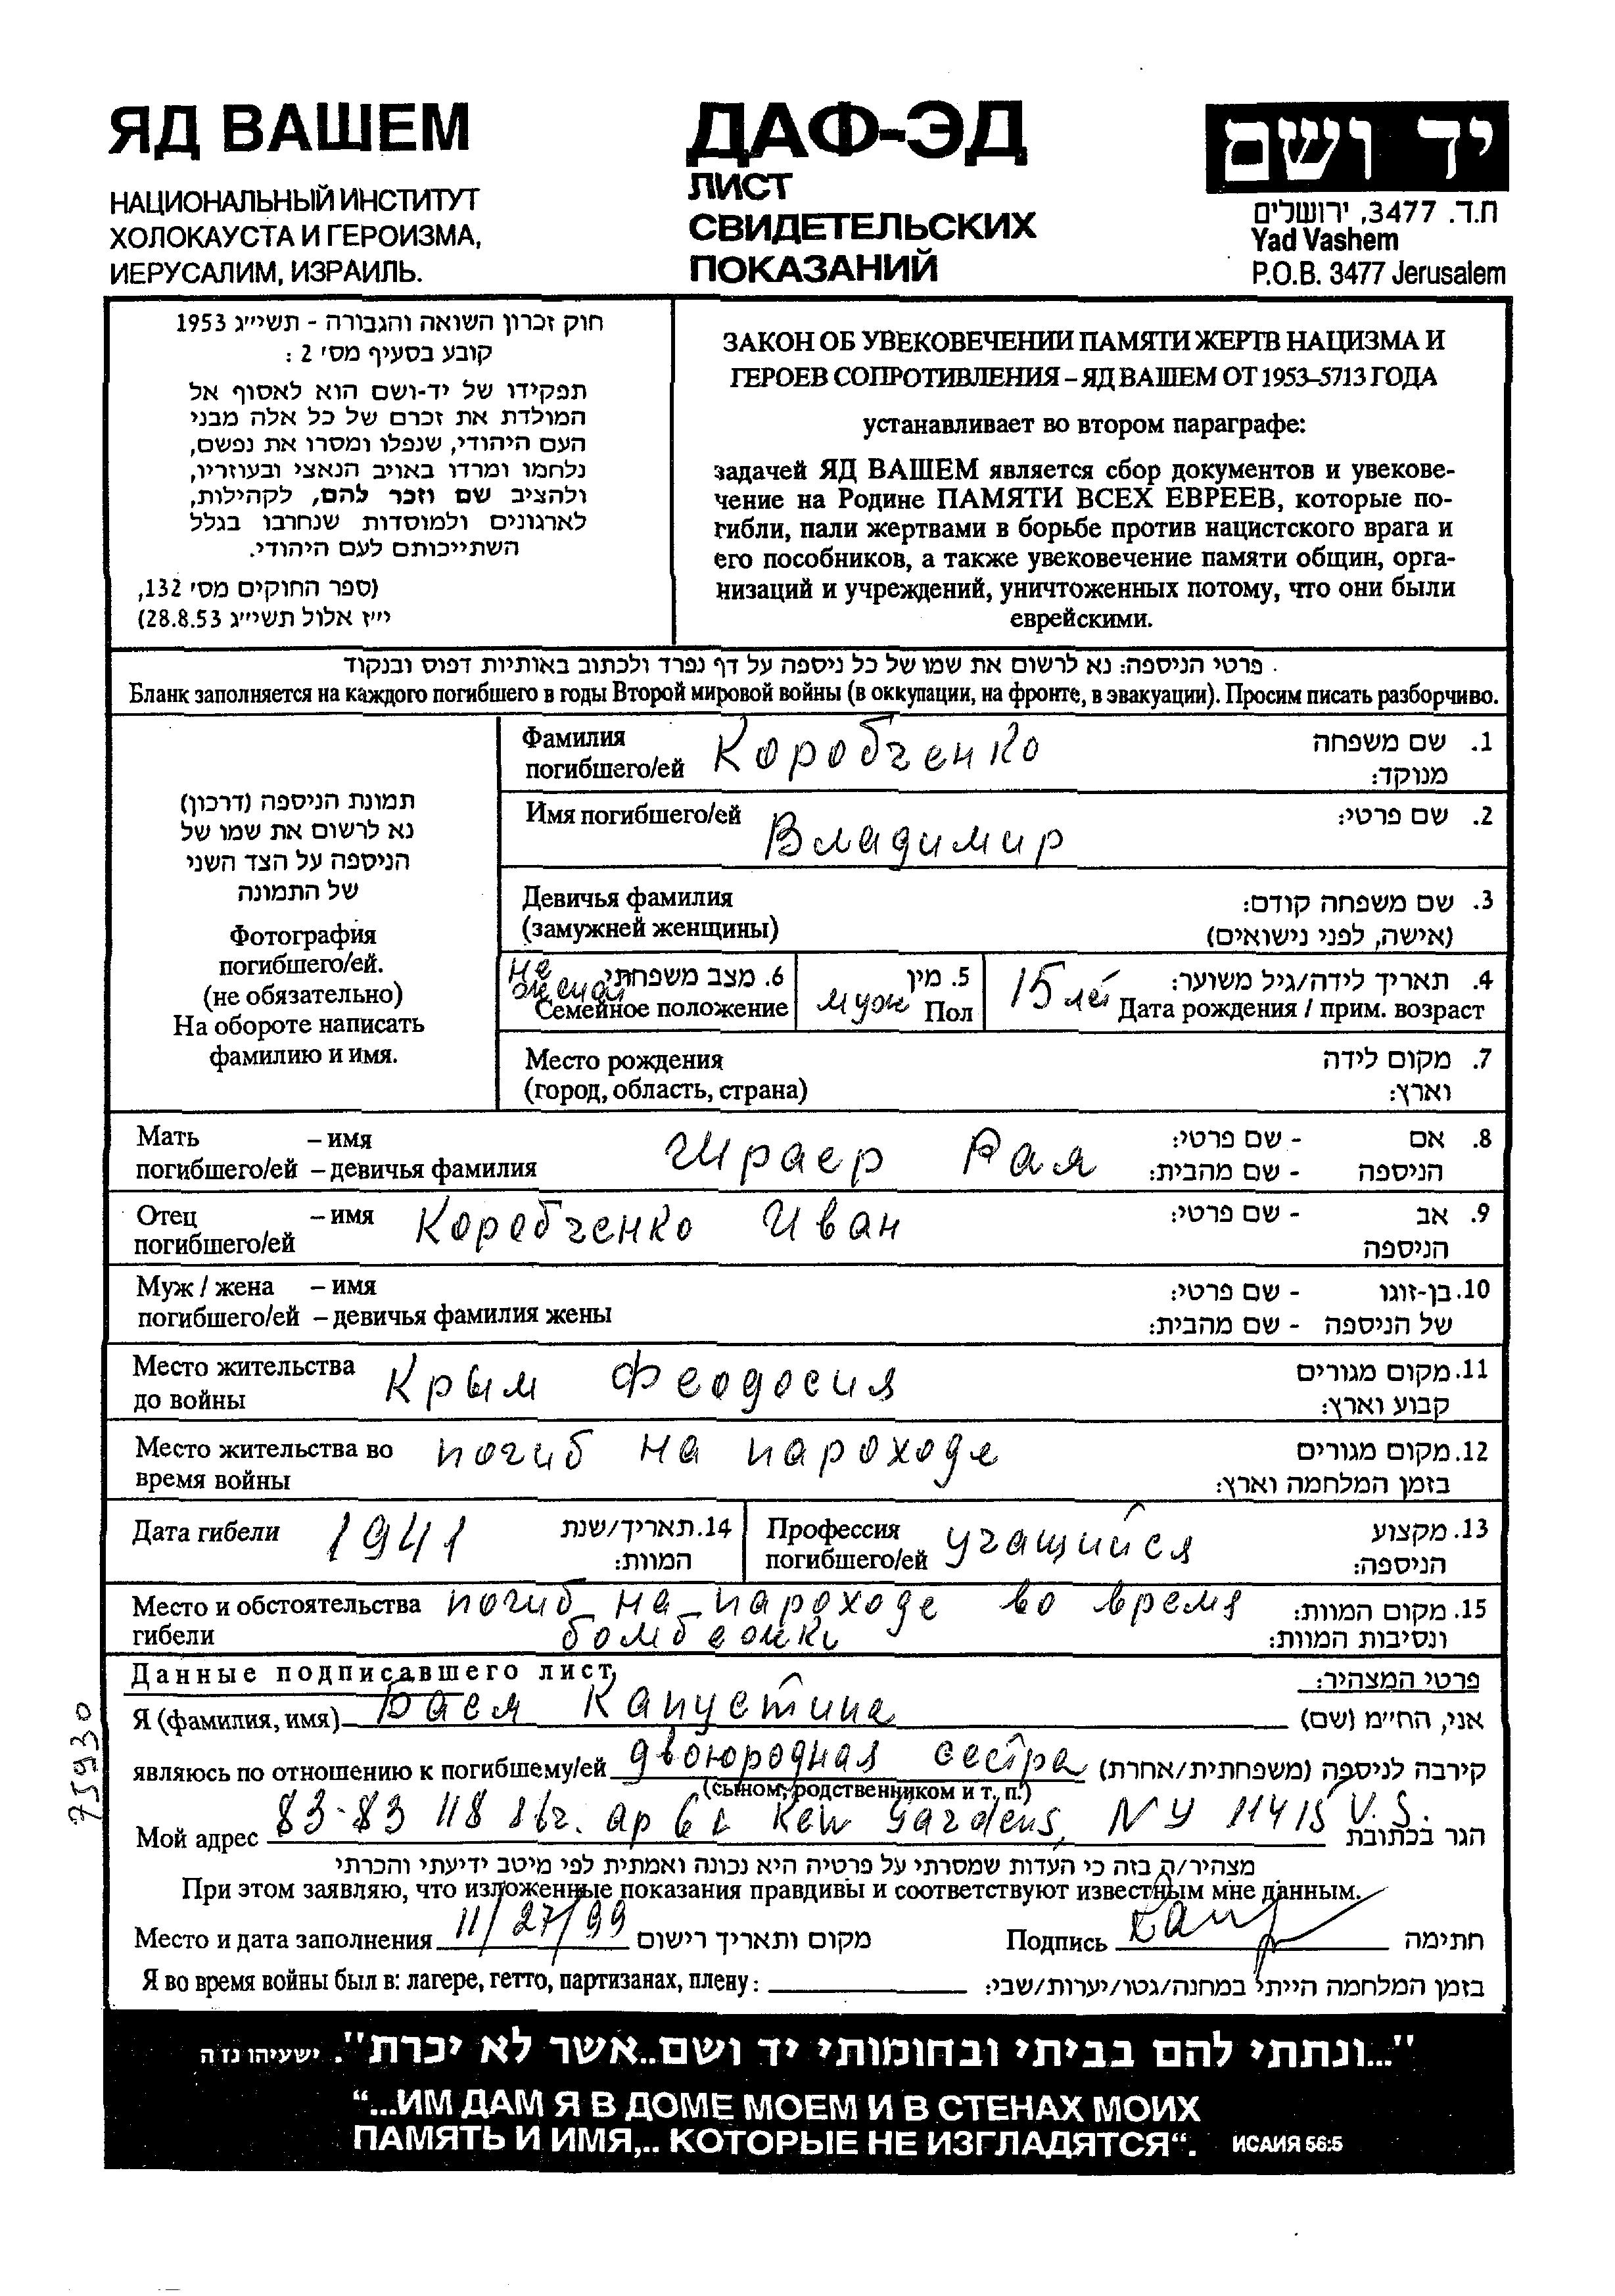 ЯД ВАШЕМ
НАЦИОНАЛЬНЫЙ ИНСТИТУТ
ХОЛОКАУСТА И ГЕРОИЗМА,
ИЕРУСАЛИМ, ИЗРАИЛЬ.
ДАФ-ЭД
ЛИСТ
СВИДЕТЕЛЬСКИХ
ПОКАЗАНИЙ
יד ושם
ת.ד. 3477, ירושלים
Yad Vashem
P.O.B. 3477 Jerusalem
חוק זכרון השואה והגבורה - תשי״ג 1953
קובע בסעיף מס׳ 2 :
תפקידו של יד-ושם הוא לאסוף אל
המולדת את זכרם של כל אלה מבני
העם היהודי, שנפלו ומסרו את נפשם,
נלחמו ומרדו באויב הנאצי ובעוזריו,
ולהציב שם וזכר להם, לקהילות,
לארגונים ולמוסדות שנחרבו בגלל
השתייכותם לעם היהודי.
(ספר החוקים מס׳ 132,
י״ז אלול תשי״ג 28.8.53)
ЗАКОН ОБ УВЕКОВЕЧЕНИИ ПАМЯТИ ЖЕРТВ НАЦИЗМА И
ГЕРОЕВ СОПРОТИВЛЕНИЯ – ЯД ВАШЕМ ОТ 1953–5713 ГОДА
устанавливает во втором параграфе:
задачей ЯД ВАШЕМ является сбор документов и увекове-
чение на Родине ПАМЯТИ ВСЕХ ЕВРЕЕВ, которые по-
гибли, пали жертвами в борьбе против нацистского врага и
его пособников, а также увековечение памяти общин, орга-
низаций и учреждений, уничтоженных потому, что они были
еврейскими.
פרטי הניספה: נא לרשום את שמו של כל ניספה על דף נפרד ולכתוב באותיות דפוס ובנקוד
Бланк заполняется на каждого погибшего в годы Второй мировой войны (в оккупации, на фронте, в эвакуации). Просим писать разборчиво.
תמונת הניספה (דרכון)
נא לרשום את שמו של
הניספה על הצד השני
של התמונה
Фотография
погибшего/ей.
(не обязательно)
На обороте написать
фамилию и имя.
Фамилия Коробченко 1. שם משפחה
погибшего/ей מנוקד:
Имя погибшего/ей Владимир 2. שם פרטי:
Девичья фамилия 3. שם משפחה קודם:
(замужней женщины) (אישה, לפני נישואים)
не женат 6. מצב משפחתי 5. מין 15 лет 4. תאריך לידה/גיל משוער:
Семейное положение муж Пол Дата рождения / прим. возраст
Место рождения 7. מקום לידה
(город, область, страна) וארץ:
Мать – имя Шраер Рая 8. אם - שם פרטי:
погибшего/ей – девичья фамилия הניספה - שם מהבית:
Отец – имя Коробченко Иван 9. אב - שם פרטי:
погибшего/ей הניספה
Муж / жена – имя 10. בן-זוגו - שם פרטי:
погибшего/ей – девичья фамилия жены של הניספה - שם מהבית:
Место жительства Крым Феодосия 11. מקום מגורים
до войны קבוע וארץ:
Место жительства во погиб на пароходе 12. מקום מגורים
время войны בזמן המלחמה וארץ:
Дата гибели 1941 14. תאריך/שנת המוות:
Профессия учащийся 13. מקצוע
погибшего/ей הניספה:
Место и обстоятельства погиб на пароходе во время 15. מקום המוות:
гибели бомбежки ונסיבות המוות:
Данные подписавшего лист פרטי המצהיר:
Я (фамилия, имя) Бася Капустина אני, החי״מ (שם)
являюсь по отношению к погибшему/ей двоюродная сестра קירבה לניספה (משפחתית/אחרת)
(сыном, родственником и т, п.)
Мой адрес 83-83 118 str. ap 6 L Kew Gardens, NY 11415 U.S. הגר בכתובת
מצהיר/ה בזה כי העדות שמסרתי על פרטיה היא נכונה ואמתית לפי מיטב ידיעתי והכרתי
При этом заявляю, что изложенные показания правдивы и соответствуют известным мне данным.
Место и дата заполнения 11/27/99 מקום ותאריך רישום Подпись חתימה
Я во время войны был в: лагере, гетто, партизанах, плену: בזמן המלחמה הייתי במחנה/גטו/יערות/שבי:
75930
"...ונתתי להם בביתי ובחומותי יד ושם..אשר לא יכרת". ישעיהו נז ה
“...ИМ ДАМ Я В ДОМЕ МОЕМ И В СТЕНАХ МОИХ
ПАМЯТЬ И ИМЯ,.. КОТОРЫЕ НЕ ИЗГЛАДЯТСЯ“. ИСАИЯ 56:5